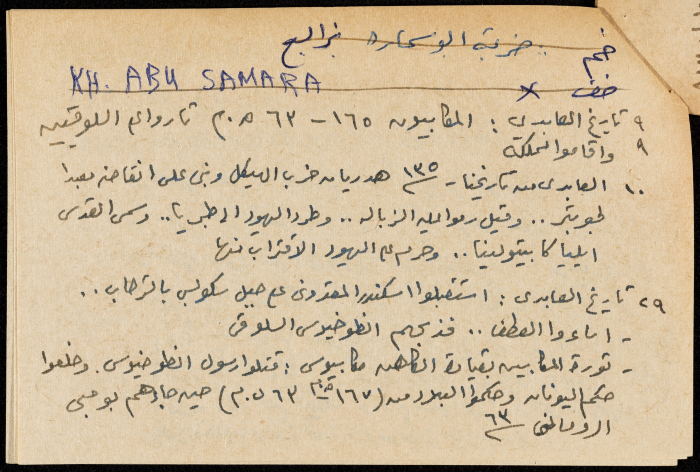 خربة ابو سماره
ضم
KH. ABU SAMARA
خف x
٩ تاريخ العابدي : المكابيون ١٦٥ - ٦٣ ق.م ثاروا على السلوقيين
٩ واقاموا مملكة
١٠ العابدي من تاريخنا - ١٣٥ هدريان خرب الهيكل وبنى على انقاضه معبدا
لجوبتر .. وقيل رموا عليه الزبالة .. وطرد اليهود الى طبريا .. وسمى القدس
ايليا كابيتولينا .. وحرم على اليهود الاقتراب منها
٢٩ تاريخ العابدي : استقبلوا اسكندر المقدوني على جبل سكوبس بالترحاب ..
- اساءوا التصرف .. فذبحهم انطوخيوس السلوقي
- ثورة المكابيين بقيادة الكاهن مكابيوس : قتلوا رسول انطوخيوس وخلعوا
حكم اليونان وحكموا البلاد من (١٦٧ ق.م ٦٣ ق.م) حين جاءهم بومبي
الروماني ٦٣